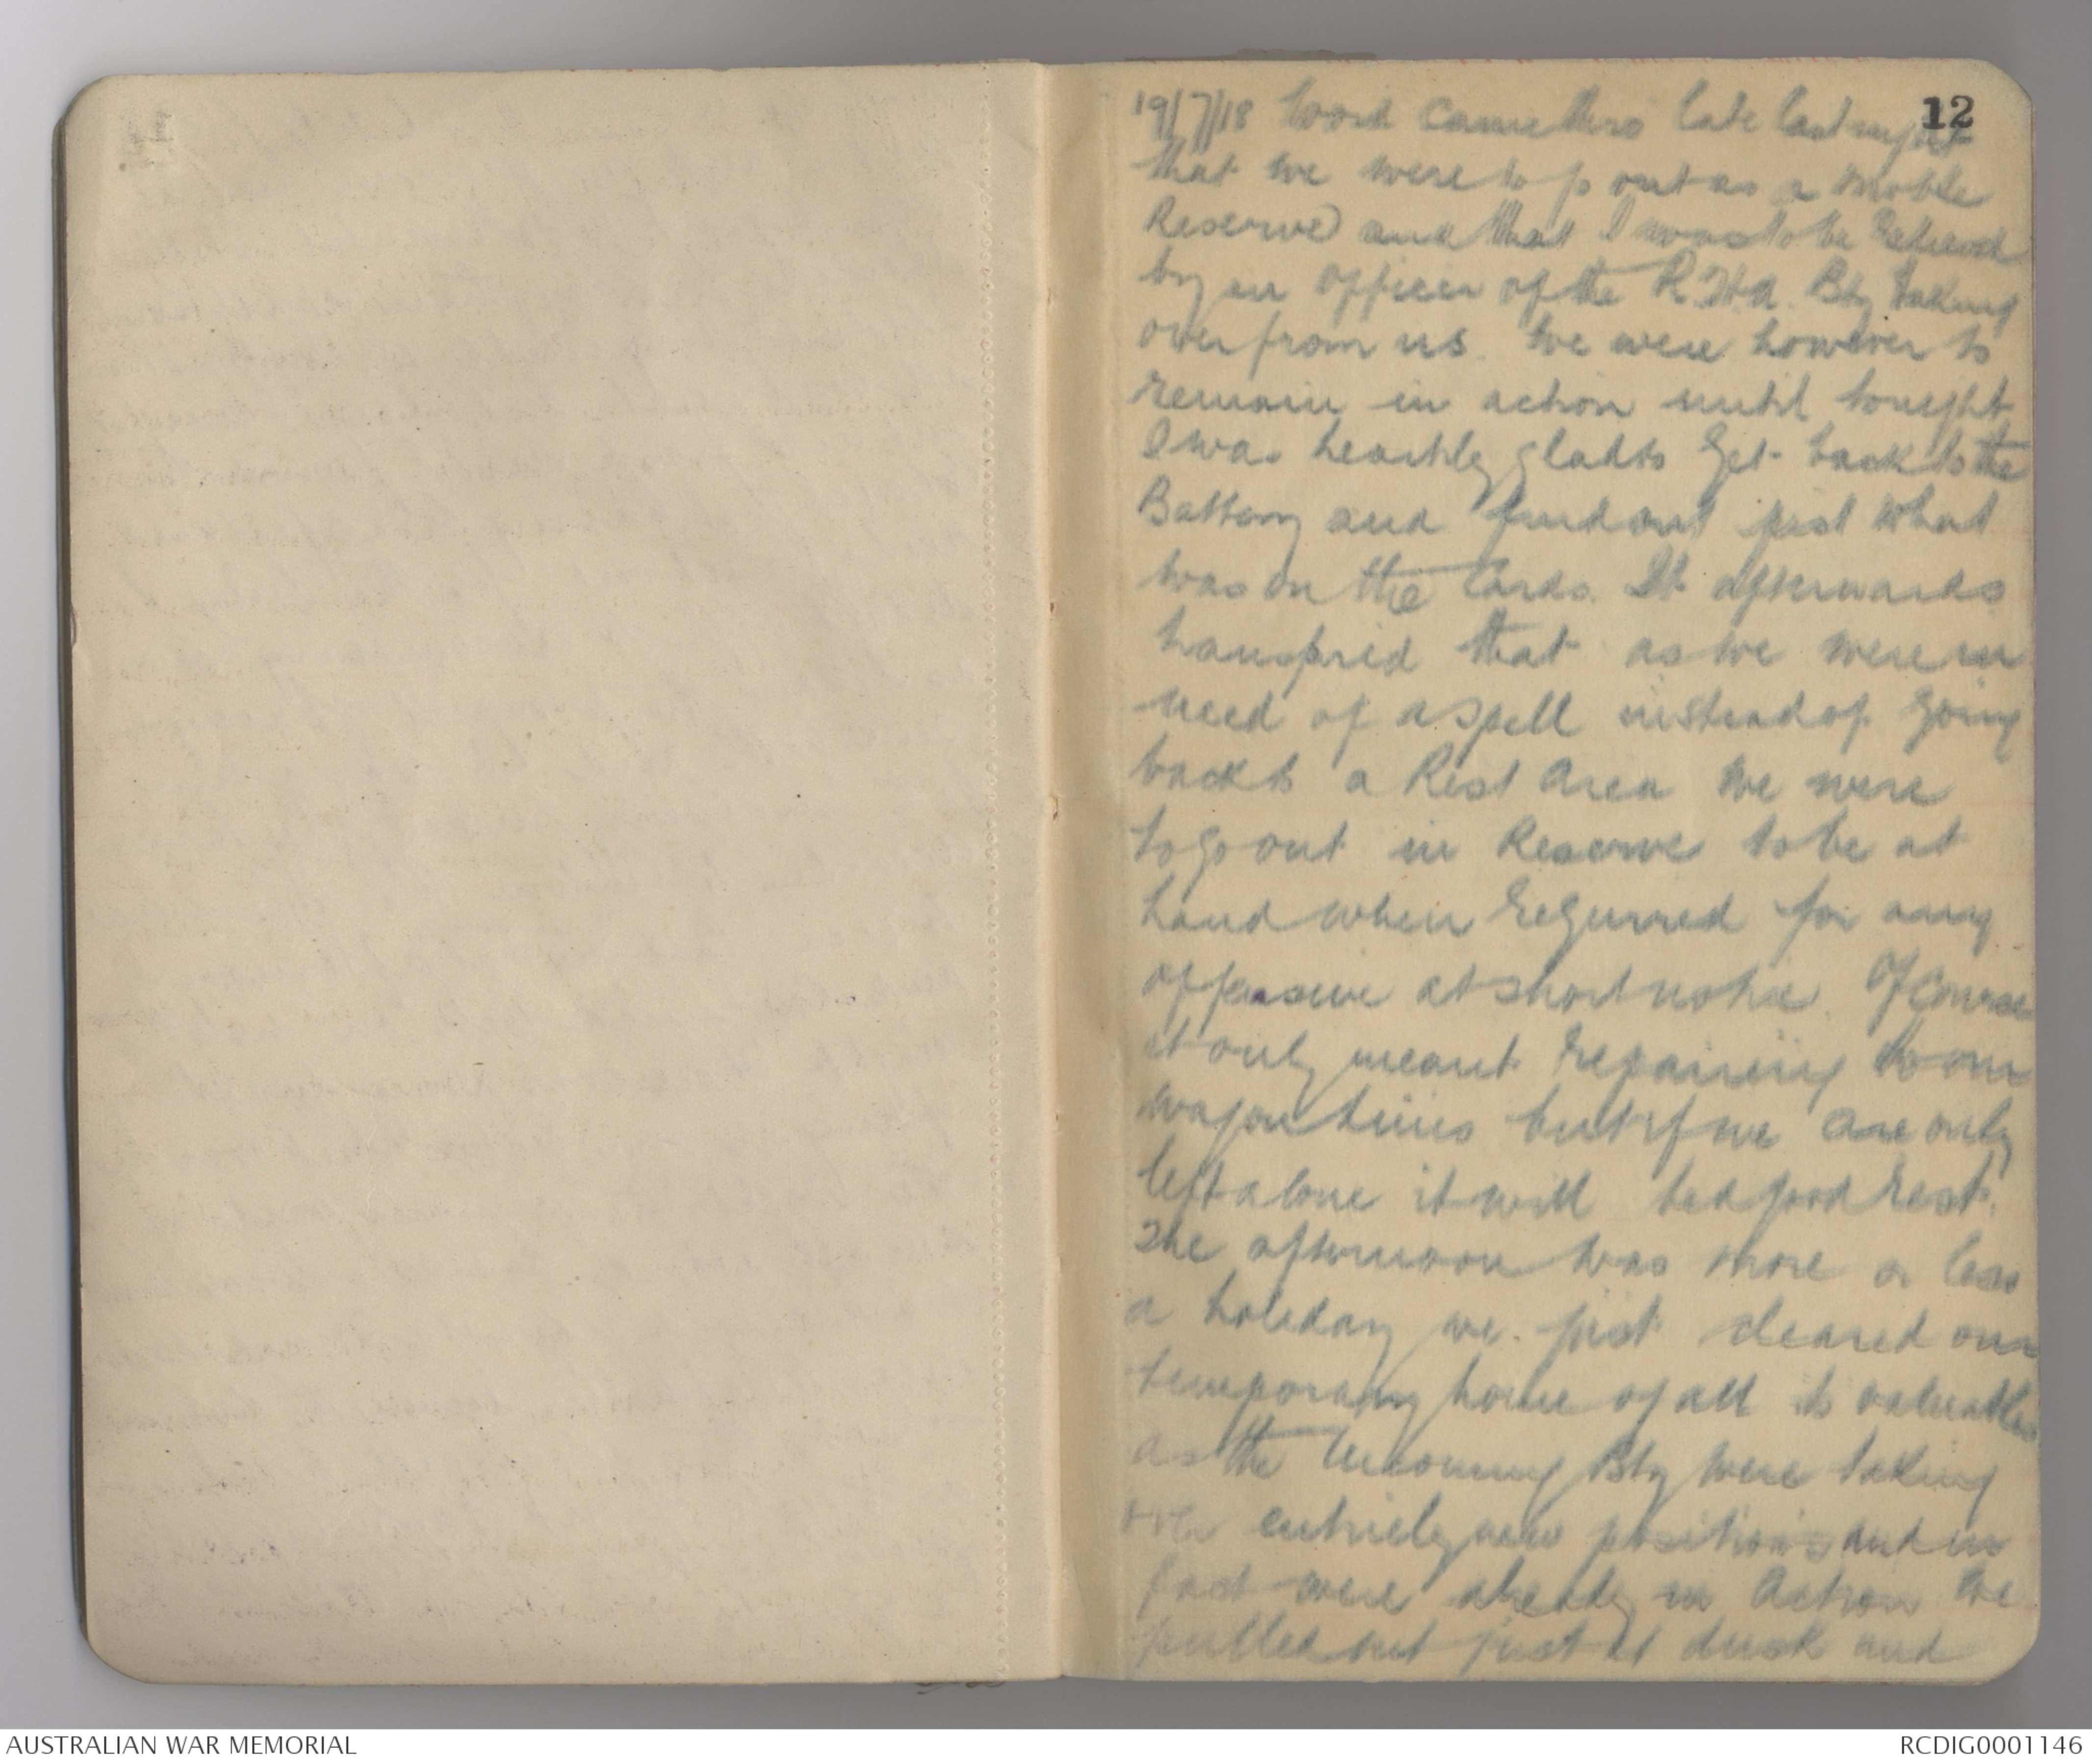 12
19/7/18 Word came thro late last night
that we were to go out as a Mobile
Reserve and that I was to be relieved
by an Officer of the R.H.A. Bty taking
over from us. We were however to
remain in action until tonight.
I was heartily glad to get back to the
Battery and find out just what
was on the Cards. It afterwards
transpired that as we were in
need of a spell instead of going
back to a Rest Area we were
to go out in Reserve to be at
hand when required for any
offensive at short notice. Of course
it only meant repairing to our
wagon lines but if we are only
left alone it will be a good rest.
The afternoon was more or less
a holiday we just cleared our
temporary home of all its valuables
as the incoming Bty were taking
over entirely new positions and in
fact were already in action we
pulled out just at dusk and
AUSTRALIAN WAR MEMORIAL
RCDIG0001146